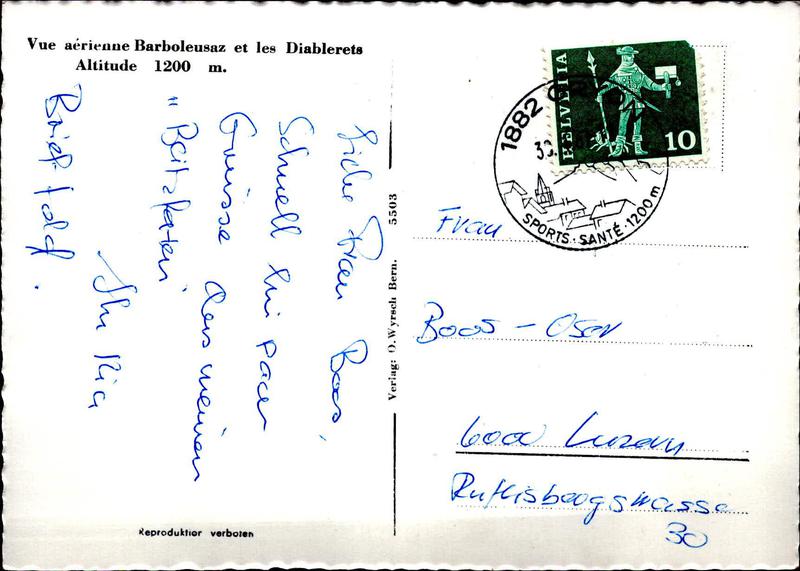 Vue aérienne Barboleusaz et les Diablerets
Altitude 1200 m.
Liebe Frau Boos,
Schnell ein paar
Grüsse aus meinen
"
Brief folgt.
Ihr
Reproduktion verboten
Verlag: O. Wyrsch Bern. 5503
HELVETIA
10
1882
SPORTS · SANTÉ · 1200 m
Frau
Boos - Oser
6000 Luzern
30